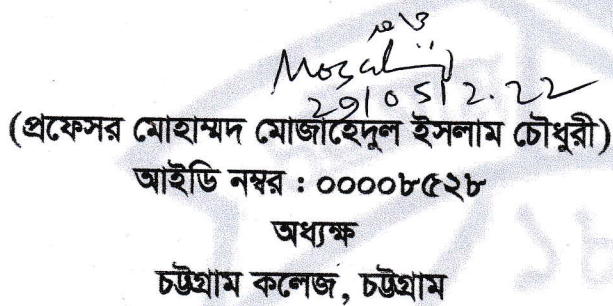 29/05/2022
(প্রফেসর মোহাম্মদ মোজাহেদুল ইসলাম চৌধুরী)
আইডি নম্বর : ০০০০৮৫২৮
অধ্যক্ষ
চট্টগ্রাম কলেজ, চট্টগ্রাম